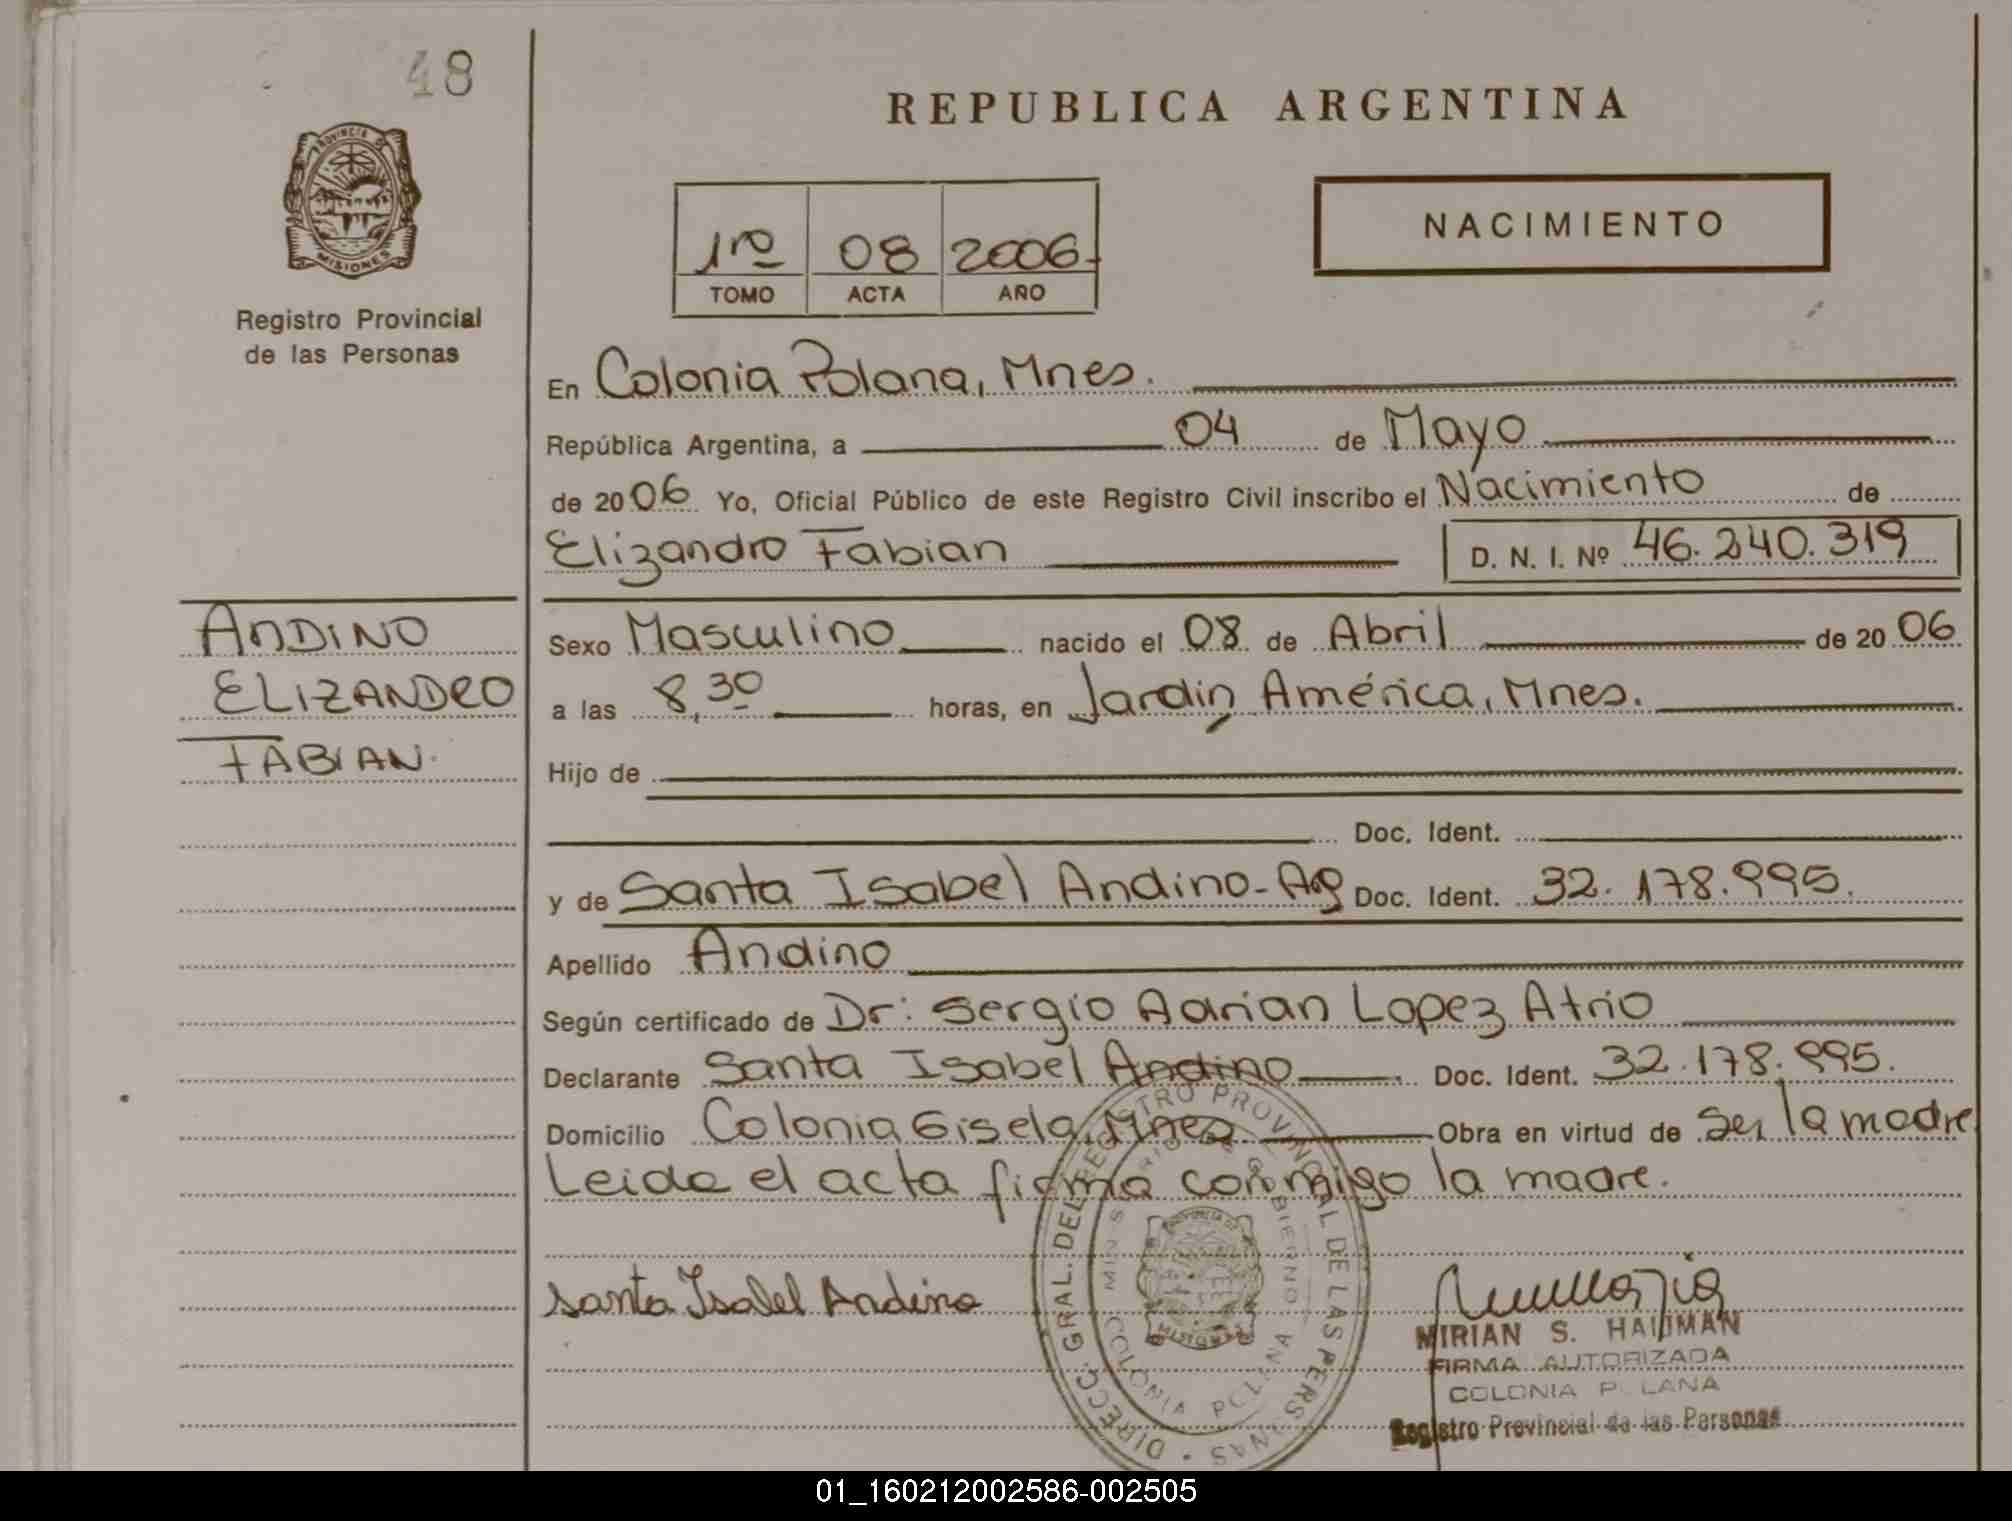 48
PROVINCIA DE
MISIONES
Registro Provincial
de las Personas
REPUBLICA ARGENTINA
1ro 08 2006
TOMO ACTA AÑO
NACIMIENTO
En Colonia Polana, Mnes.
República Argentina, a 04 de Mayo
de 2006 Yo, Oficial Público de este Registro Civil inscribo el Nacimiento de
Elizandro Fabian D. N. I. Nº 46.240.319
ANDINO
ELIZANDRO
FABIAN.
Sexo Masculino nacido el 08 de Abril de 2006
a las 8,30 horas, en Jardin América, Mnes.
Hijo de
Doc. Ident.
y de Santa Isabel Andino-Ag Doc. Ident. 32.178.995.
Apellido Andino
Según certificado de Dr: Sergio Adrian Lopez Atrio
Declarante Santa Isabel Andino Doc. Ident. 32.178.995.
Domicilio Colonia Gisela, Mnes Obra en virtud de Ser la madre
Leida el acta firma conmigo la madre.
Santa Isabel Andino
DIRECC. GRAL. DEL REGISTRO PROVINCIAL DE LAS PERSONAS
MINISTERIO DE GOBIERNO
COLONIA POLANA
MISIONES
MIRIAN S. HAUMAN
FIRMA AUTORIZADA
COLONIA POLANA
Registro Provincial de las Personas
01_160212002586-002505